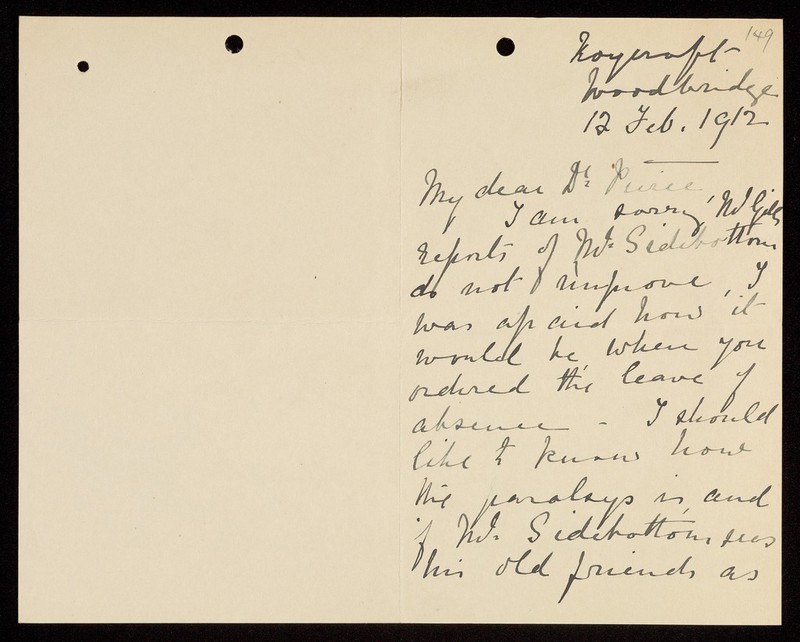 149
Roycroft
Woodbridge
12 Feb. 1912
My dear Dr. Pierce
I am sorry, Mr Gill's
reports of Mr. Sidebottom
do not improve, I
was afraid how it
would be when you
ordered the leave of
absence - I should
like to know how
the paralsys is, and
if Mr. Sidebottom sees
his old friends as